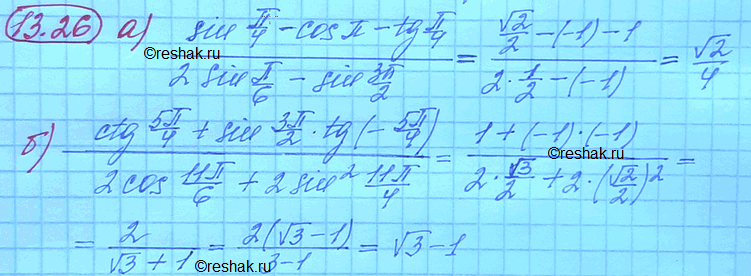 13.26 а) (sin π/4 - cos π - tg π/4)/(2 sin π/6 - sin 3π/2) = (√2/2 - (-1) - 1)/(2·1/2 - (-1)) = √2/4
©reshak.ru ©reshak.ru
б) (ctg 5π/4 + sin 3π/2 · tg(-5π/4))/(2cos 11π/6 + 2 sin² 11π/4) = (1 + (-1)·(-1))/(2·√3/2 + 2·(√2/2)²) =
©reshak.ru
= 2/(√3 + 1) = 2(√3 - 1)/(3-1) = √3 - 1
©reshak.ru